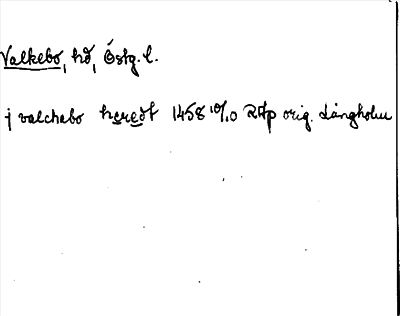 Valkebo, hd, Östg. l.
j valchabo heredt 1458 10/10 RAp orig. Långholm